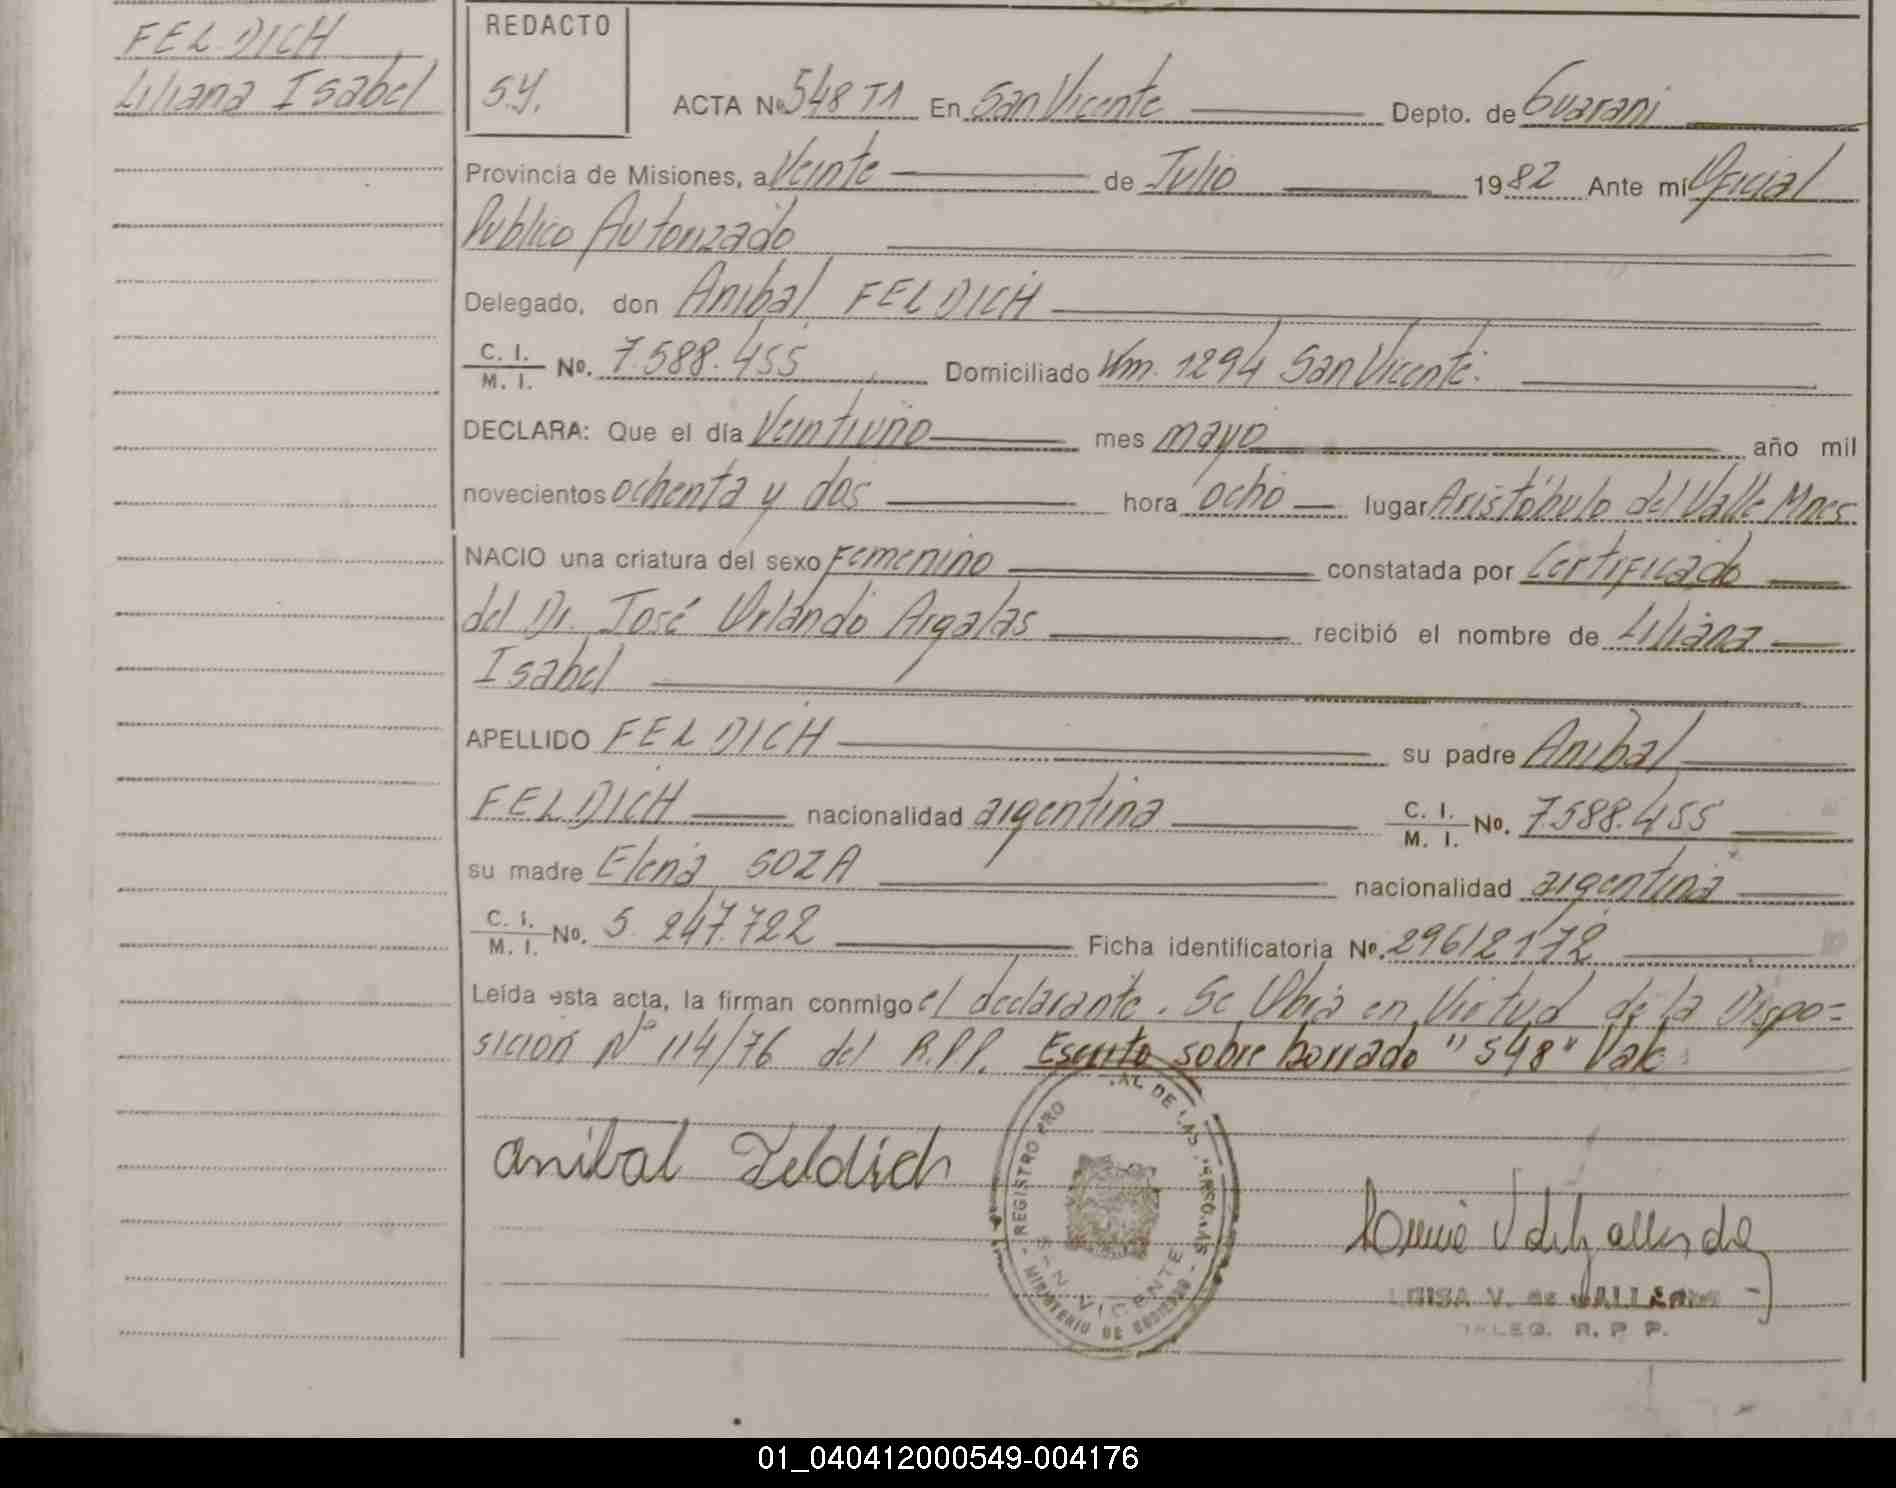 FELDICH
Liliana Isabel
REDACTO
S.Y.
ACTA Nº 548 T1 En San Vicente Depto. de Guaraní
Provincia de Misiones, a Veinte de Julio 1982 Ante mí Oficial
Publico Autorizado
Delegado, don Anibal FELDICH
C. I. / M. I. Nº. 7.588.455 Domiciliado Km. 1294 San Vicente.
DECLARA: Que el día Veintiuno mes mayo año mil
novecientos ochenta y dos hora ocho lugar Aristóbulo del Valle Mnes
NACIO una criatura del sexo Femenino constatada por Certificado
del Dr. José Orlando Argalas recibió el nombre de Liliana
Isabel
APELLIDO FELDICH su padre Anibal
FELDICH nacionalidad argentina C. I. / M. I. Nº. 7.588.455
su madre Elena SOZA nacionalidad argentina
C. I. / M. I. Nº. 5.247.722 Ficha identificatoria Nº. 29612172
Leída esta acta, la firman conmigo el declarante. Se Ubica en Virtud de la Dispo=
sicion Nº 114/76 del R.P.P. Escrito sobre borrado "548" Vale
Anibal Feldich
REGISTRO PRO AL DE LAS PERSONAS
SAN VICENTE
MINISTERIO DE GOBIERNO
LUISA V. de GALLARDO
DELEG. R. P. P.
01_040412000549-004176